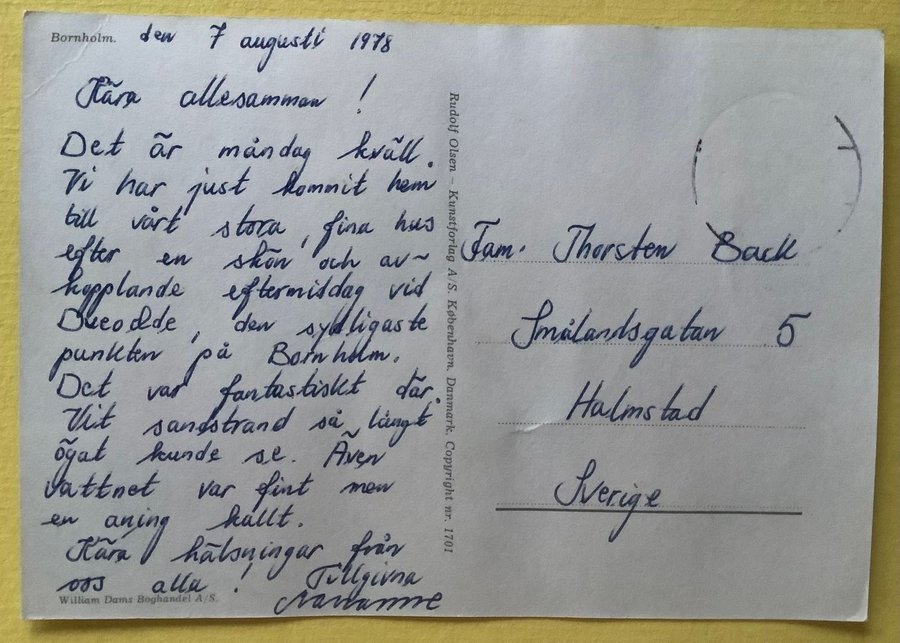 Bornholm. den 7 augusti 1978
Kära allesamman !
Det är måndag kväll.
Vi har just kommit hem
till vårt stora, fina hus
efter en skön och av-
kopplande eftermiddag vid
Dueodde, den sydligaste
punkten på Bornholm.
Det var fantastiskt där.
Vit sandstrand så långt
ögat kunde se. Även
vattnet var fint men
en aning kallt.
Kära hälsningar från
oss alla ! Tillgivna
Marianne
William Dams Boghandel A/S.
Rudolf Olsen – Kunstforlag A/S. København. Danmark. Copyright nr. 1701
Fam. Thorsten Back
Smålandsgatan 5
Halmstad
Sverige